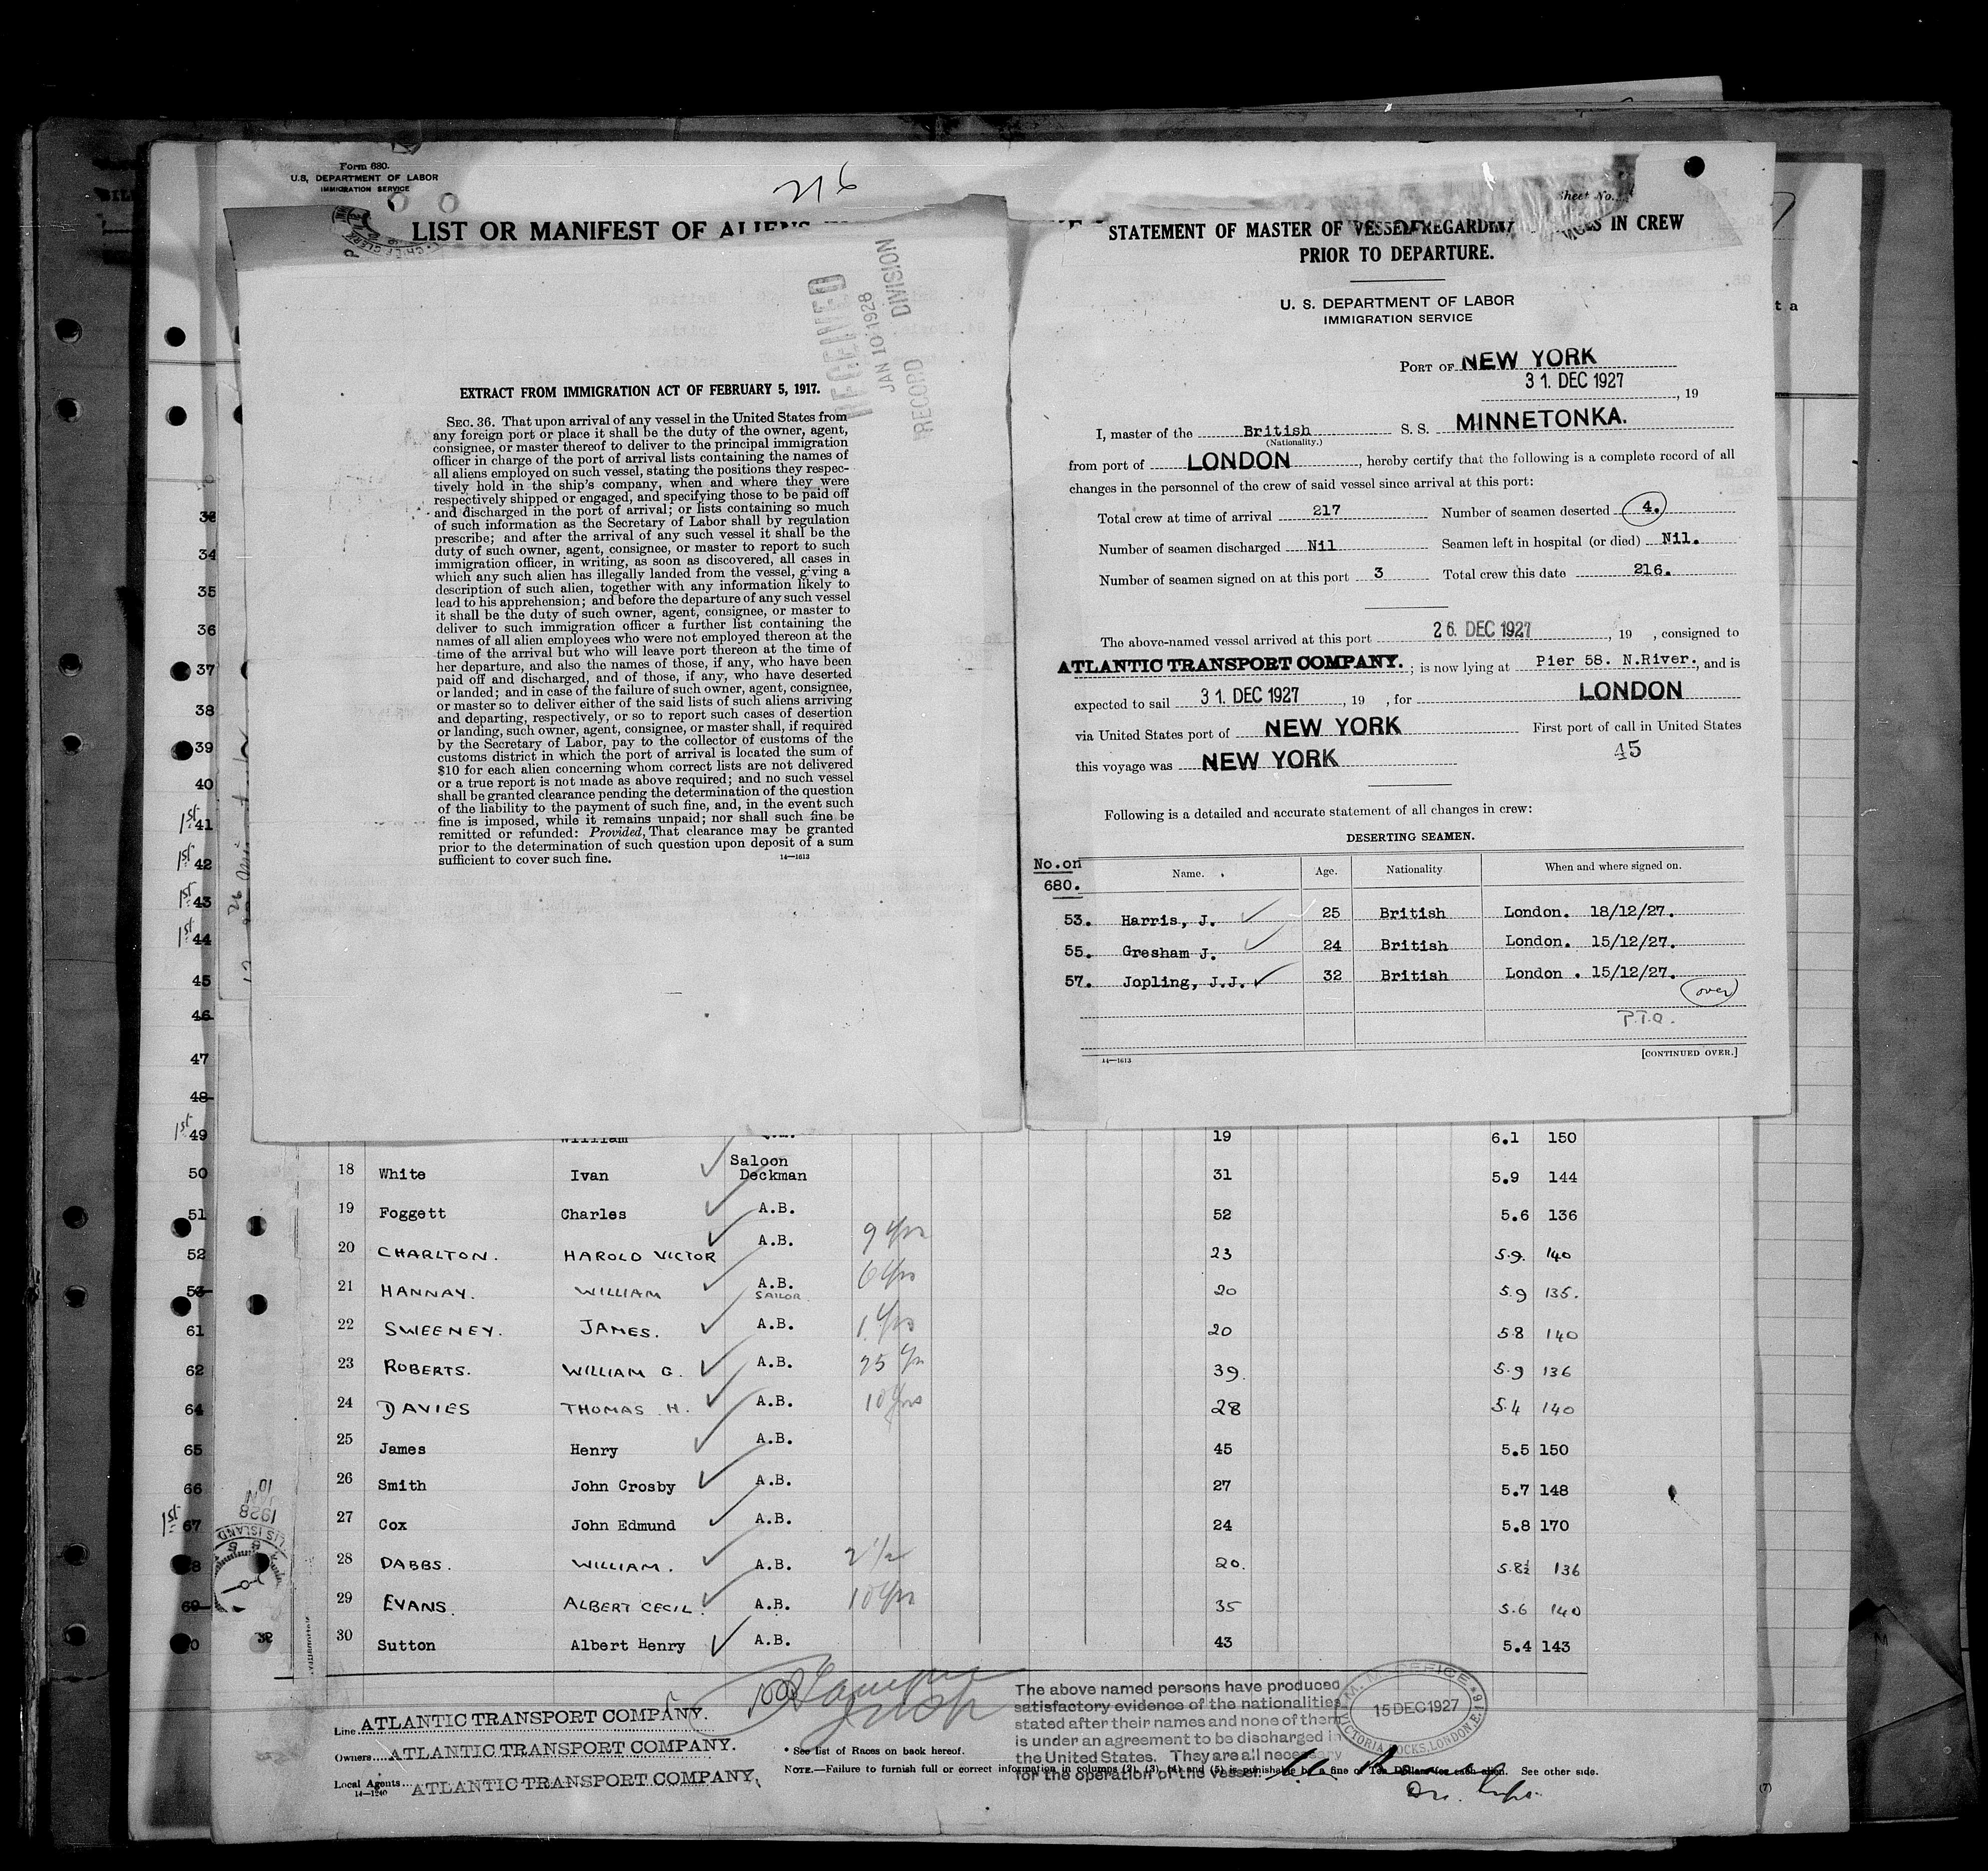 Form 680.
U.S. DEPARTMENT OF LABOR
IMMIGRATION SERVICE
216
Sheet No.
LIST OR MANIFEST OF ALIENS
RECEIVED
JAN 10 1928
RECORD DIVISION
EXTRACT FROM IMMIGRATION ACT OF FEBRUARY 5, 1917.
SEC. 36. That upon arrival of any vessel in the United States from
any foreign port or place it shall be the duty of the owner, agent,
consignee, or master thereof to deliver to the principal immigration
officer in charge of the port of arrival lists containing the names of
all aliens employed on such vessel, stating the positions they respec-
tively hold in the ship's company, when and where they were
respectively shipped or engaged, and specifying those to be paid off
and discharged in the port of arrival; or lists containing so much
of such information as the Secretary of Labor shall by regulation
prescribe; and after the arrival of any such vessel it shall be the
duty of such owner, agent, consignee, or master to report to such
immigration officer, in writing, as soon as discovered, all cases in
which any such alien has illegally landed from the vessel, giving a
description of such alien, together with any information likely to
lead to his apprehension; and before the departure of any such vessel
it shall be the duty of such owner, agent, consignee, or master to
deliver to such immigration officer a further list containing the
names of all alien employees who were not employed thereon at the
time of the arrival but who will leave port thereon at the time of
her departure, and also the names of those, if any, who have been
paid off and discharged, and of those, if any, who have deserted
or landed; and in case of the failure of such owner, agent, consignee,
or master so to deliver either of the said lists of such aliens arriving
and departing, respectively, or so to report such cases of desertion
or landing, such owner, agent, consignee, or master shall, if required
by the Secretary of Labor, pay to the collector of customs of the
customs district in which the port of arrival is located the sum of
$10 for each alien concerning whom correct lists are not delivered
or a true report is not made as above required; and no such vessel
shall be granted clearance pending the determination of the question
of the liability to the payment of such fine, and, in the event such
fine is imposed, while it remains unpaid; nor shall such fine be
remitted or refunded: Provided, That clearance may be granted
prior to the determination of such question upon deposit of a sum
sufficient to cover such fine. 14—1613
STATEMENT OF MASTER OF VESSEL REGARDING CHANGES IN CREW
PRIOR TO DEPARTURE.
U. S. DEPARTMENT OF LABOR
IMMIGRATION SERVICE
PORT OF NEW YORK
31. DEC 1927, 19
I, master of the British S. S. MINNETONKA.
(Nationality.)
from port of LONDON, hereby certify that the following is a complete record of all
changes in the personnel of the crew of said vessel since arrival at this port:
Total crew at time of arrival 217 Number of seamen deserted 4.
Number of seamen discharged Nil Seamen left in hospital (or died) Nil.
Number of seamen signed on at this port 3 Total crew this date 216.
The above-named vessel arrived at this port 26. DEC 1927, 19 , consigned to
ATLANTIC TRANSPORT COMPANY.; is now lying at Pier 58. N.River., and is
expected to sail 31. DEC 1927, 19 , for LONDON
via United States port of NEW YORK First port of call in United States
this voyage was NEW YORK 45
Following is a detailed and accurate statement of all changes in crew:
DESERTING SEAMEN.
No.on 680. Name. Age. Nationality When and where signed on.
53. Harris, J. 25 British London. 18/12/27.
55. Gresham J. 24 British London. 15/12/27.
57. Jopling, J.J. 32 British London . 15/12/27.
over
P.T.O.
14—1613 [CONTINUED OVER.]
33
34
35
36
37
38
39
40
1st 41
1st 42
1st 43
1st 44
45
46
47
48
1st 49
50
51
52
53
61
62
64
65
66
1st 67
69
William 19 6.1 150
18 White Ivan Saloon Deckman 31 5.9 144
19 Foggett Charles A.B. 52 5.6 136
20 CHARLTON. HAROLD VICTOR A.B. 9 yrs 23 5.9. 140
21 HANNAY. WILLIAM A.B. SAILOR 6 yrs 20 5.9 135.
22 SWEENEY. JAMES. A.B. 1 yrs 20 5.8 140
23 ROBERTS. WILLIAM G. A.B. 25 yrs 39. 5.9 136
24 DAVIES THOMAS H. A.B. 10 yrs 28 5.4 140
25 James Henry A.B. 45 5.5 150
26 Smith John Crosby A.B. 27 5.7 148
27 Cox John Edmund A.B. 24 5.8 170
28 DABBS. WILLIAM. A.B. 2 1/2 20. 5.8½ 136
29 EVANS. ALBERT CECIL. A.B. 10 yrs 35 5.6 140
30 Sutton Albert Henry A.B. 43 5.4 143
Line ATLANTIC TRANSPORT COMPANY.
Owners ATLANTIC TRANSPORT COMPANY.
Local Agents ATLANTIC TRANSPORT COMPANY.
14—1240
The above named persons have produced
satisfactory evidence of the nationalities
stated after their names and none of them
is under an agreement to be discharged in
the United States. They are all necessary
for the operation of the vessel.
M. M. OFFICE
15 DEC 1927
VICTORIA DOCKS, LONDON, E.16
* See list of Races on back hereof.
NOTE.—Failure to furnish full or correct information in columns (2), (3), (4) and (5) is punishable by a fine of Ten Dollars for each alien. See other side.
(7)